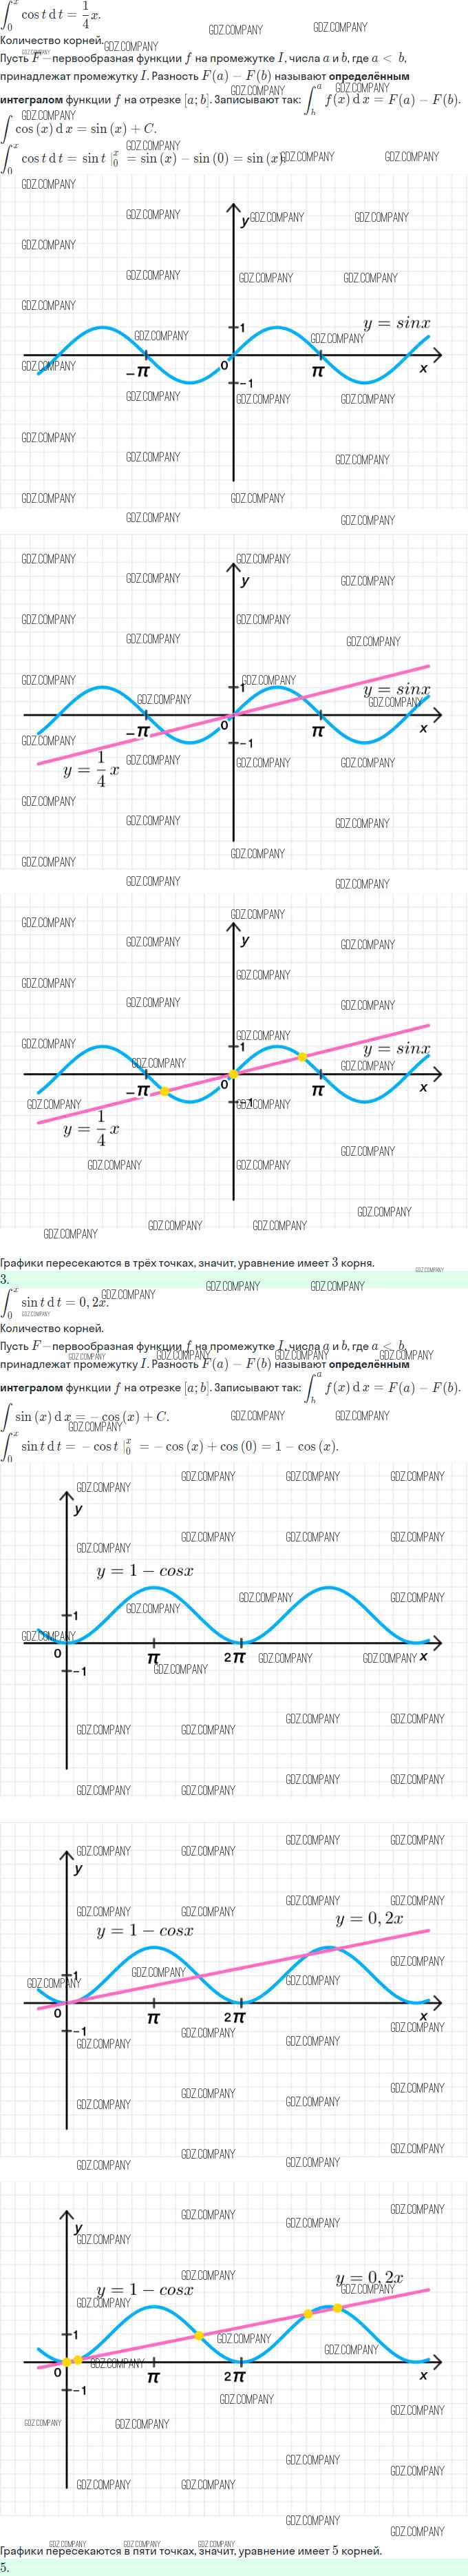 ∫₀ˣ cos t d t = 1/4 x.
Количество корней.
Пусть F – первообразная функции f на промежутке I, числа a и b, где a < b,
принадлежат промежутку I. Разность F(a) − F(b) называют определённым
интегралом функции f на отрезке [a; b]. Записывают так: ∫ₕᵃ f(x) d x = F(a) − F(b).
∫ cos (x) d x = sin (x) + C.
∫₀ˣ cos t d t = sin t |₀ˣ = sin (x) − sin (0) = sin (x).
GDZ.COMPANY
y
1
y = sinx
0
−π
π
x
−1
y
1
y = sinx
0
−π
π
x
−1
y = 1/4 x
y
1
y = sinx
0
−π
π
x
−1
y = 1/4 x
Графики пересекаются в трёх точках, значит, уравнение имеет 3 корня.
3.
∫₀ˣ sin t d t = 0, 2x.
Количество корней.
Пусть F – первообразная функции f на промежутке I, числа a и b, где a < b,
принадлежат промежутку I. Разность F(a) − F(b) называют определённым
интегралом функции f на отрезке [a; b]. Записывают так: ∫ₕᵃ f(x) d x = F(a) − F(b).
∫ sin (x) d x = − cos (x) + C.
∫₀ˣ sin t d t = − cos t |₀ˣ = − cos (x) + cos (0) = 1 − cos (x).
y
y = 1 − cosx
1
0
π
2π
x
−1
y
y = 0, 2x
y = 1 − cosx
1
0
π
2π
x
−1
y
y = 0, 2x
y = 1 − cosx
1
0
π
2π
x
−1
Графики пересекаются в пяти точках, значит, уравнение имеет 5 корней.
5.